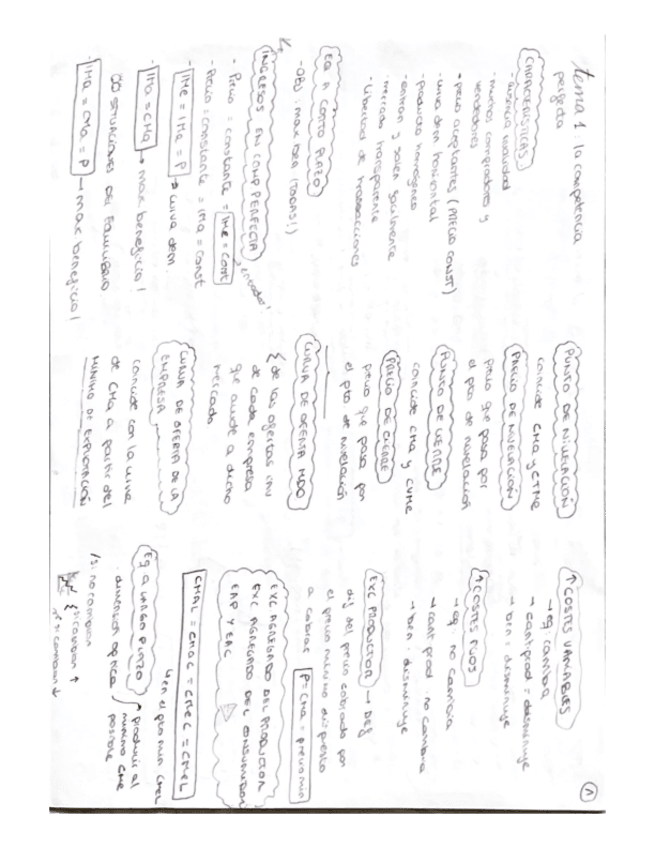 tema 1: la competencia
perfecta
CARACTERÍSTICAS:
- ausencia rivalidad
- muchos compradores y
vendedores
- precio aceptantes (PRECIO CONST)
- curva dem horizontal
- producto homogéneo
- entran y salen fácilmente
- mercado transparente
- libertad de transacciones
EQ A CORTO PLAZO
- OBJ: max ben (TODAS!)
INGRESOS EN COMP PERFECTA
- Precio = constante = IMe = Const
- Precio = constante = IMa = const
- IMe = IMa = P → curva dem
- IMa = CMa → max beneficio!
SITUACIONES DEL EQUILIBRIO
- IMa = CMa = P → max beneficio!
PUNTO DE NIVELACIÓN
coincide CMa y CTMe
PRECIO DE NIVELACIÓN
precio que pasa por
el pto de nivelación
PUNTO DE CIERRE
coincide CMa y CVMe
PRECIO DE CIERRE
precio que pasa por
el pto de nivelación
CURVA DE OFERTA MDO
de las ofertas ind
de cada empresa
que acude a dicho
mercado
CURVA DE OFERTA DE LA
EMPRESA
coincide con la curva
de CMa a partir del
MÍNIMO DE EXPLOTACIÓN
↑ COSTES VARIABLES
→ eq: cambia
→ cant prod = disminuye
→ bin = disminuye
↑ COSTES FIJOS
→ eq: no cambia
→ cant prod: no cambia
→ bin: disminuye
EXC PRODUCTOR → DEF
dif del precio cobrado por
el precio mínimo dispuesto
a cobrar P = CMa = precio min
EXC AGREGADO DEL PRODUCTOR
EXC AGREGADO DEL CONSUMIDOR
EAP Y EAC
CMAL = CMAC = CMEC = CMEL
↳ en el pto min CMEL
EQ A LARGO PLAZO
· dimensión óptica producir al
mínimo CMe
posible
/si no cambian
si cambian ↑
si cambian ↓
1